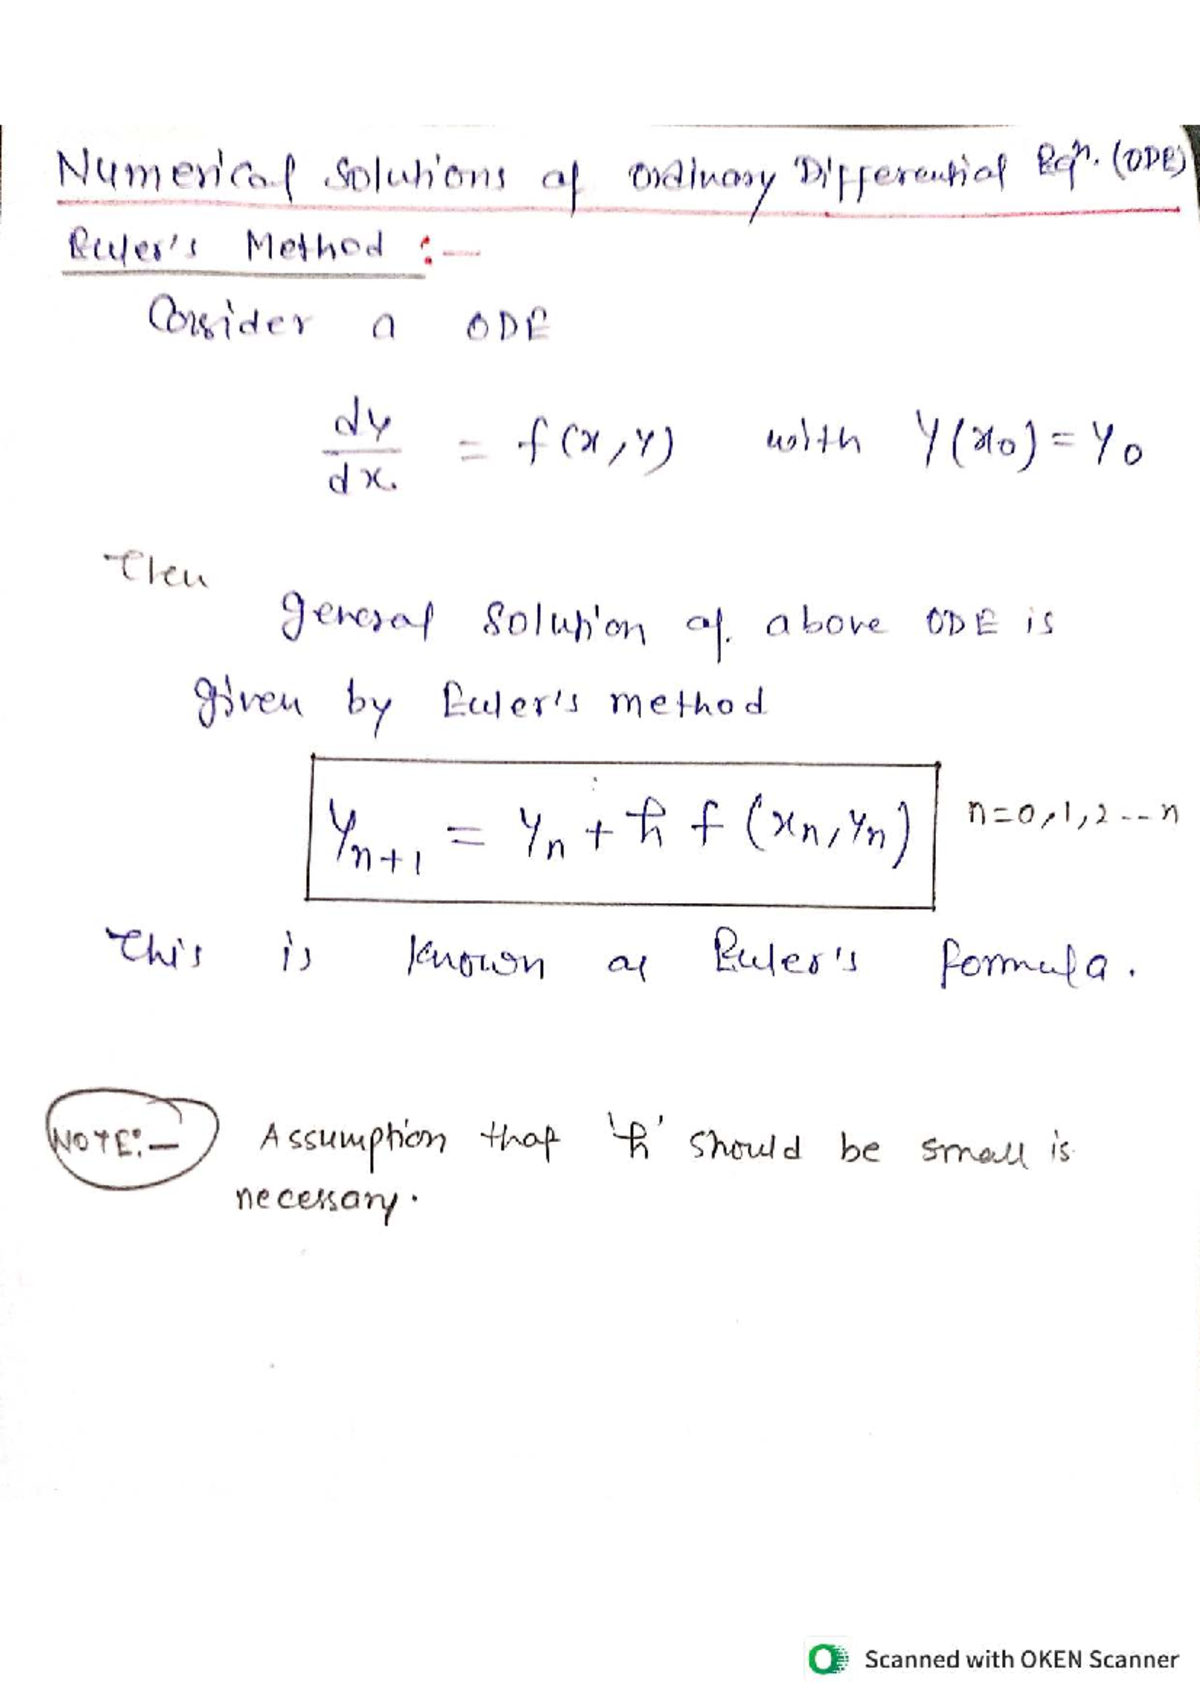 Numerical Solutions of Ordinary Differential Eqn. (ODE)
Euler's Method :—
Consider a ODE
dy/dx = f(x,y) with y(x0) = y0
Then
general solution of above ODE is
given by Euler's method
yn+1 = yn + h f(xn, yn) n=0,1,2---n
This is known as Euler's formula.
NOTE:— Assumption that 'h' should be small is
necessary.
Scanned with OKEN Scanner